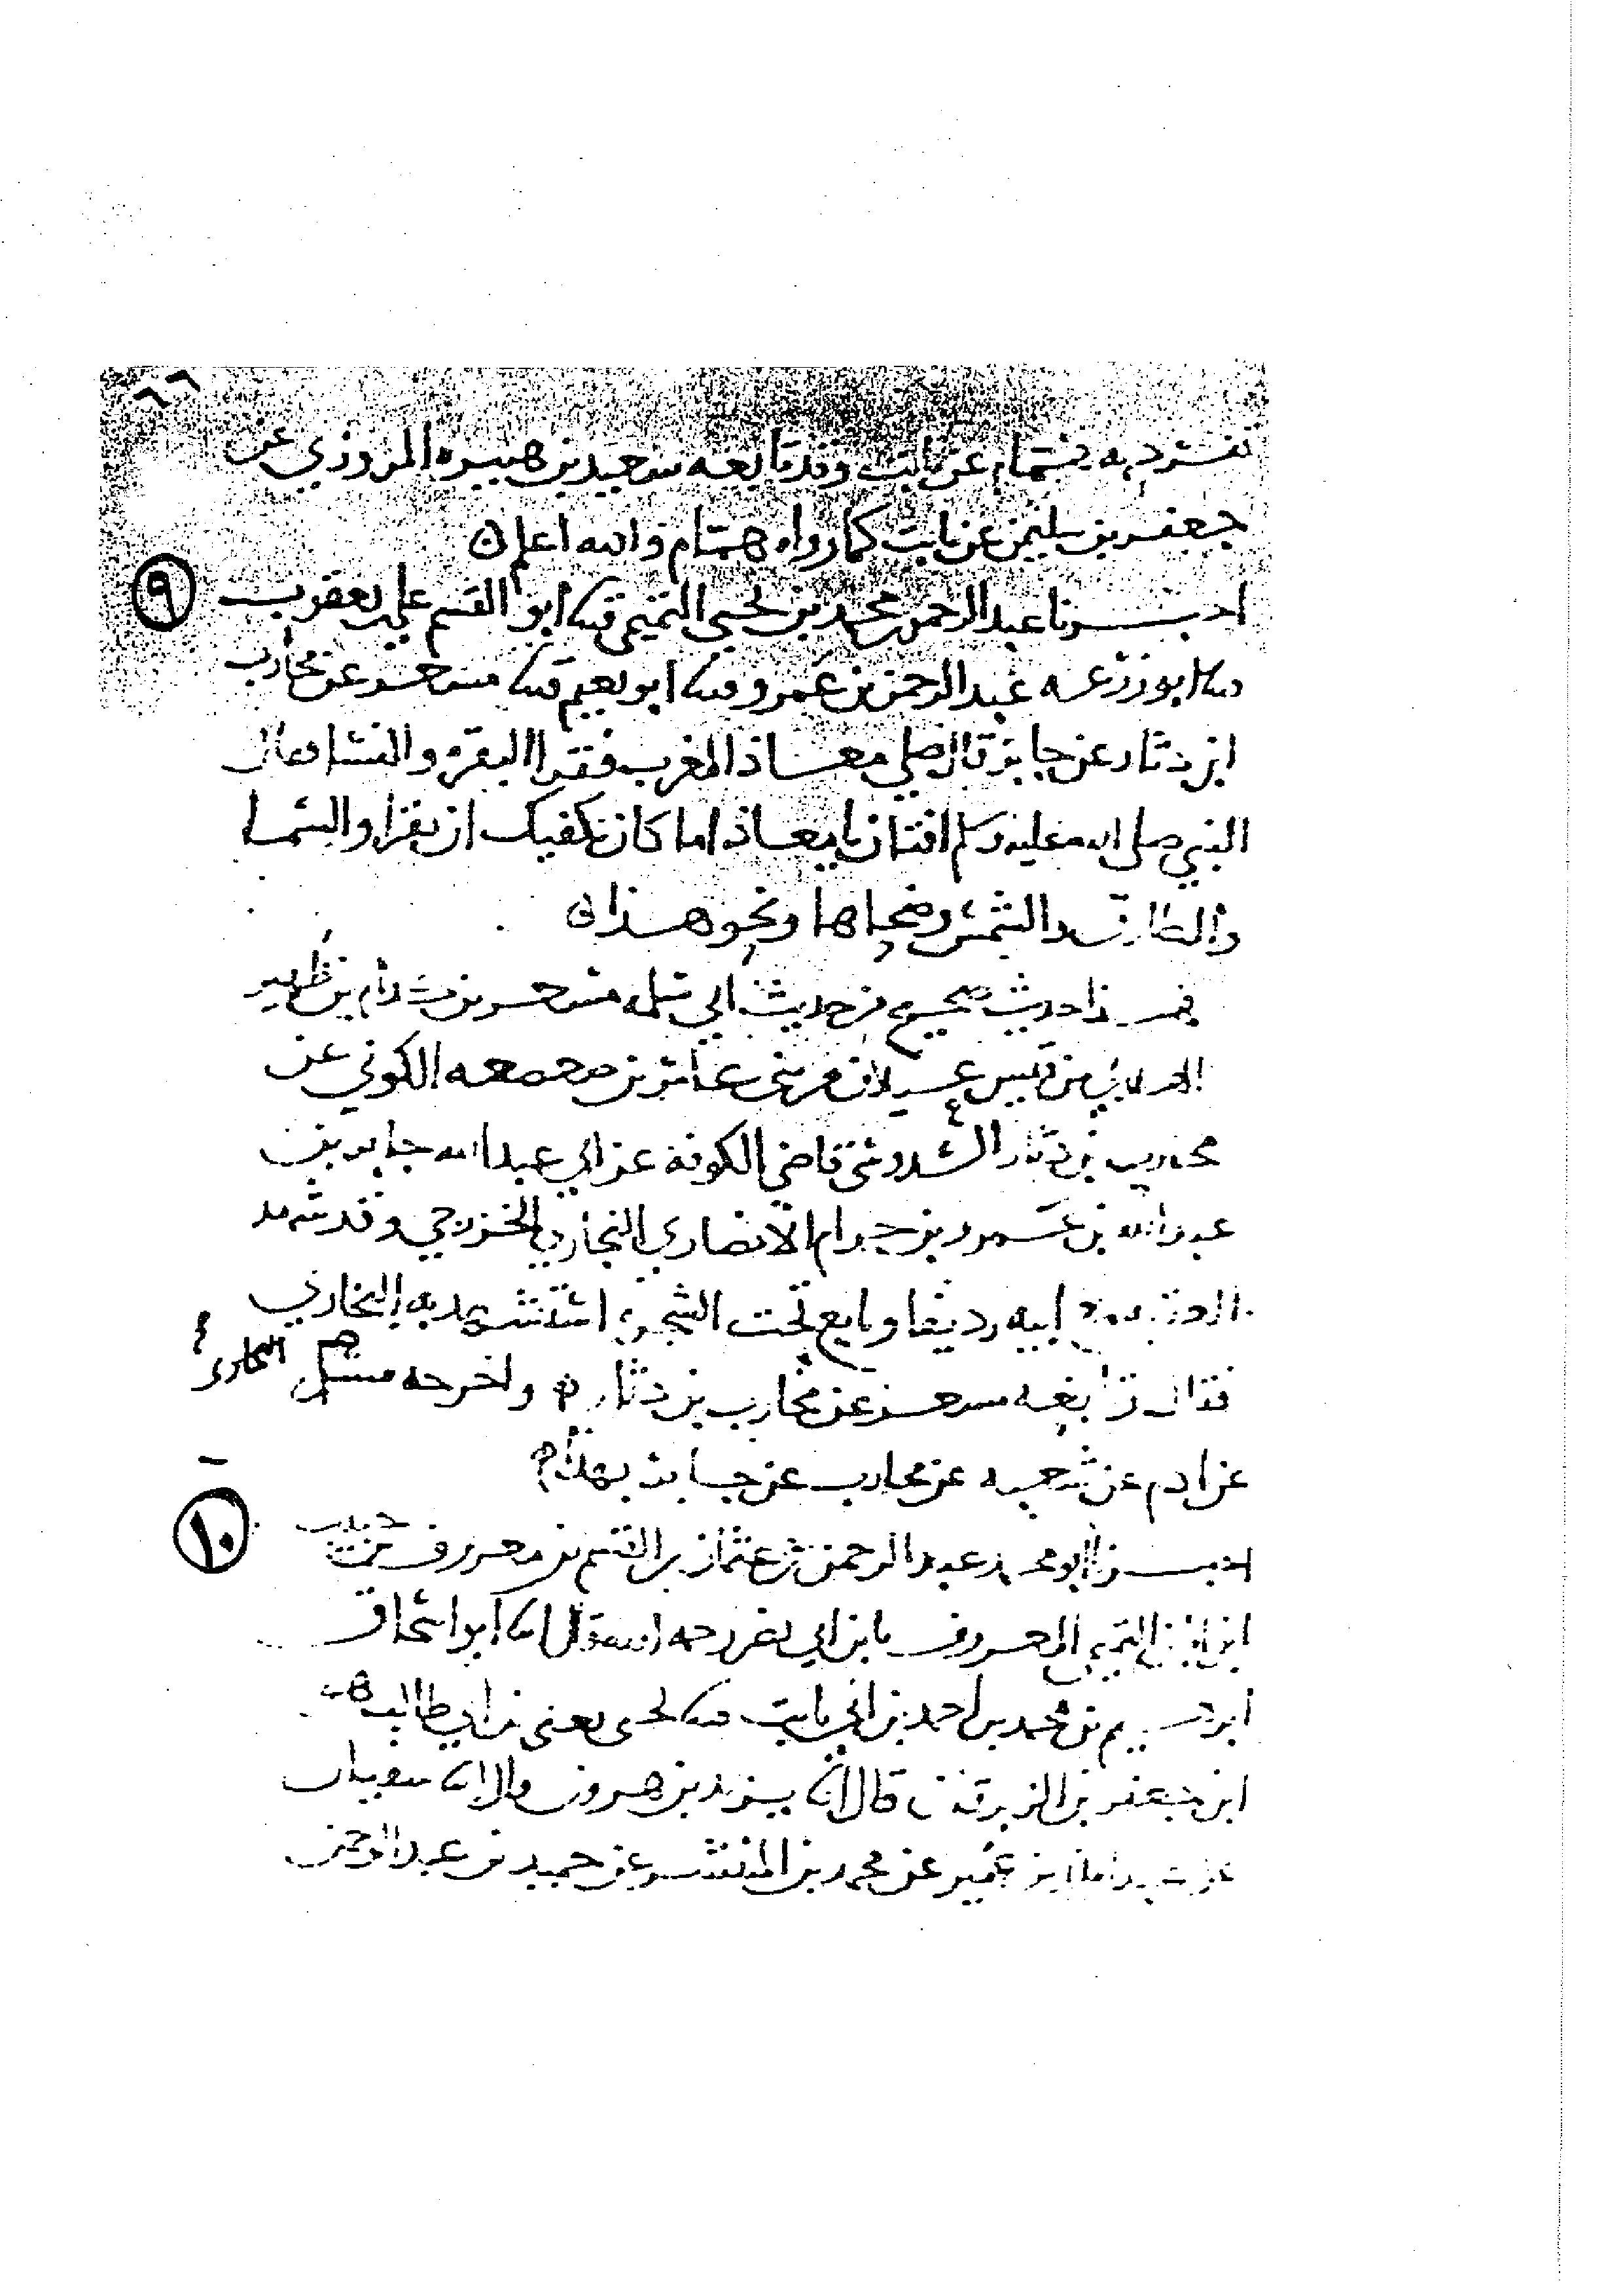 ٦٦
تفرد به همام عن ثابت وقد تابعه سعيد بن هبيره المروزي عن
جعفر بن سليمن عن ثابت كما رواه همام والله اعلم ن
٩
اخبرنا عبد الرحمن محمد بن يحيى التميمي ثنا ابو القسم علي بن يعقوب
ثنا ابو زرعه عبد الرحمن بن عمرو ثنا ابو نعيم ثنا مسعر عن محارب
ابن دثار عن جابر قال صلى معاذ المغرب فقرا البقره والنسا فقال
النبي صلى الله عليه وسلم افتان يا معاذ اما كان يكفيك ان تقرا والسما
والطارق والشمس وضحاها ونحو هذا ن
هذا حديث صحيح من حديث ابي سلمه مسعر بن كدام بن ظهير
الهلالي من قيس عيلان من بني عامر بن صعصعه الكوفي عن
محارب بن دثار السدوسي قاضي الكوفه عن ابي عبد الله جابر بن
عبد الله بن عمرو بن حرام الانصاري النجاري الخزرجي وقد شهد
العقبه مع ابيه رديفا وبايع تحت الشجره استشهد به البخاري
فقال تابعه مسعر عن محارب بن دثار ه واخرجه البخاري
عن ادم عن شعبه عن محارب عن جابر بهذا ه
١٠
اخبرنا ابو محمد عبد الرحمن بن عثمان بن القسم بن معروف بن حبيب
ابن ابان التميمي المعروف بابن ابي نصر رحمه الله قال انا ابو اسحاق
ابرهيم بن محمد بن احمد بن ابي ثابت ثنا يحيى يعني بن ابي طالب
ابن جعفر بن الزبرقان قال انا يزيد بن هرون قال انا سفيان
عن عبد الملك بن عمير عن محمد بن المنتشر عن حميد بن عبد الرحمن